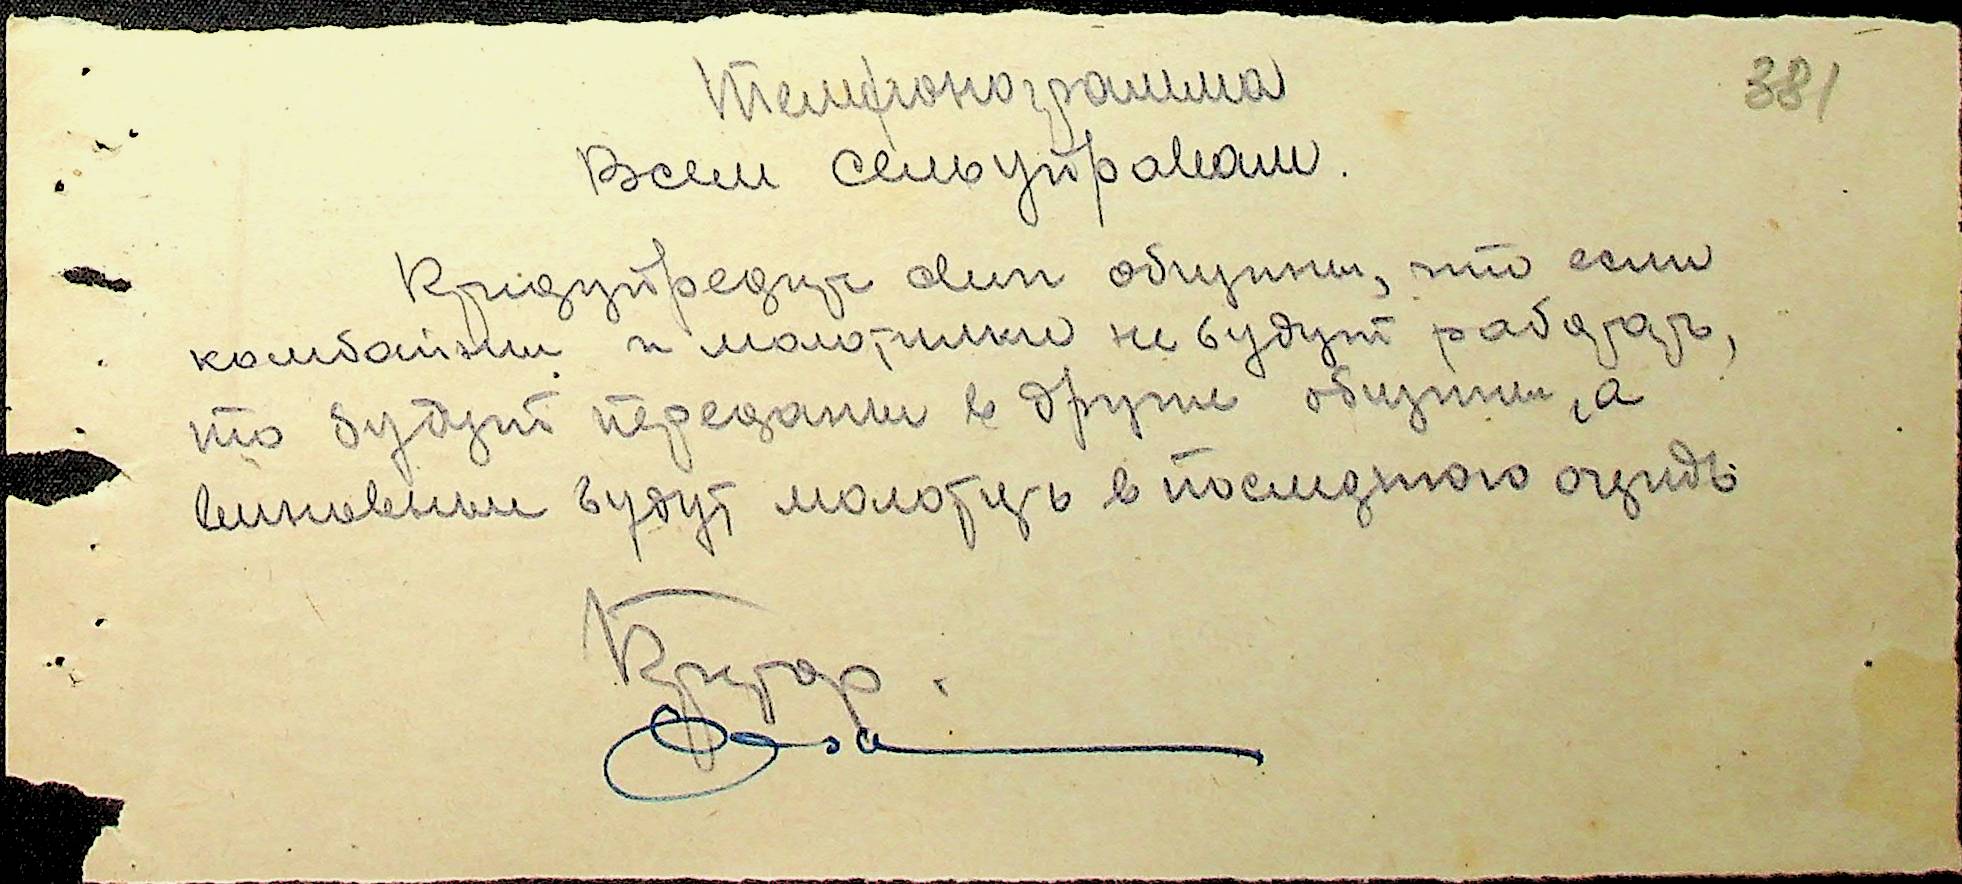 381
Телефонограмма
Всем сельуправам.
Предупредить свои общины, что если
комбайны и молотилки не будут работать,
то будут переданы в другие общины, а
виновные будут молотить в последнюю очередь